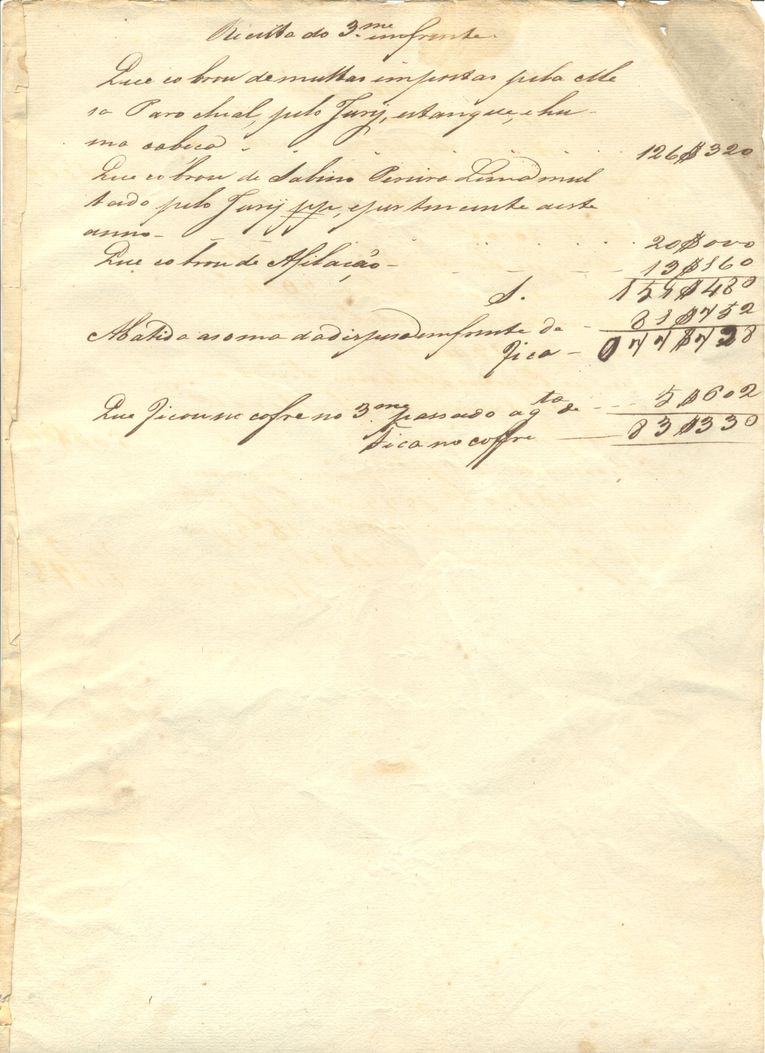 Receita do 3.me emfrente
Que cobrou de multas impostas pela Me
sa Parochial, pelo Jury, estanque, e hu-
ma cabeça - . . . . 126$320
Que cobrou de Sabino Pereira Lima mul
tado pelo Jury ppe, e
anno - . . . . 20$000
Que cobrou de Afilação - - - - 13$160
S. 159$480
Abatida a soma da dispesa emfrente de - 81$752
Fica - 077$728
Que ficou no cofre no 3.me passado a qta de - - 5$602
Fica no coffre - 83$330